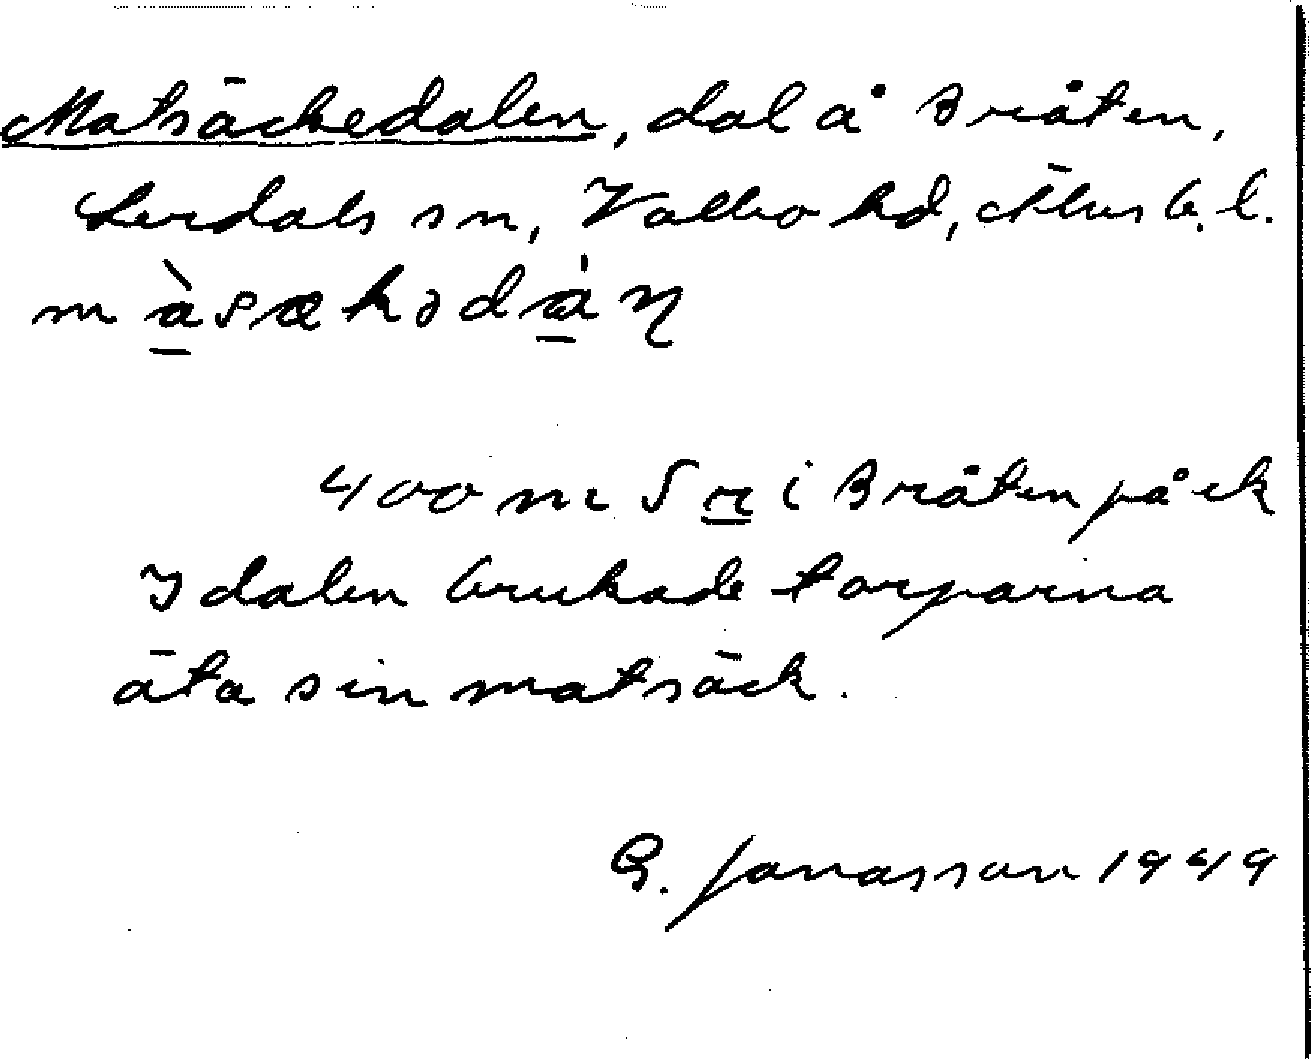 Matsäckedalen, dal å Bråten,
Lerdals sn, Valbo hd, Älvsb. l.
màsækədàɳ
400 m S r i Bråten på ek
I dalen brukade torparna
äta sin matsäck.
G. Jonasson 1949